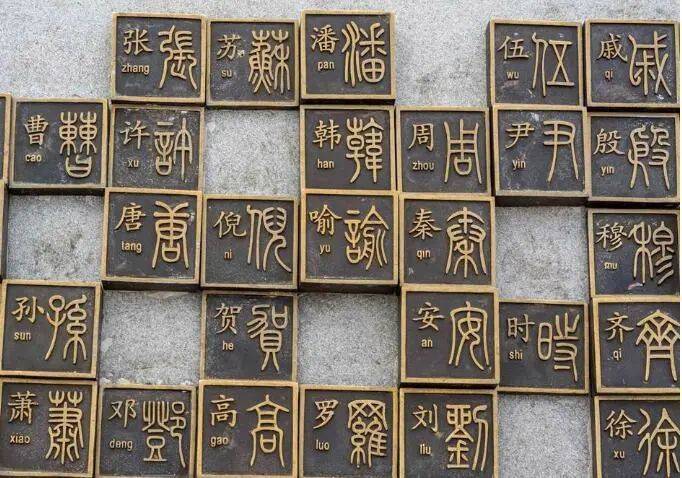 张 張
zhang
苏 蘇
su
潘 潘
pan
伍 伍
wu
戚 戚
qi
曹 曹
cao
许 許
xu
韩 韓
han
周 周
zhou
尹 尹
yin
殷 殷
yin
唐 唐
tang
倪 倪
ni
喻 諭
yu
秦 秦
qin
穆 穆
mu
孙 孫
sun
贺 賀
he
安 安
an
时 時
shi
齐 齊
qi
萧 蕭
xiao
邓 鄧
deng
高 高
gao
罗 羅
luo
刘 劉
liu
徐 徐
xu